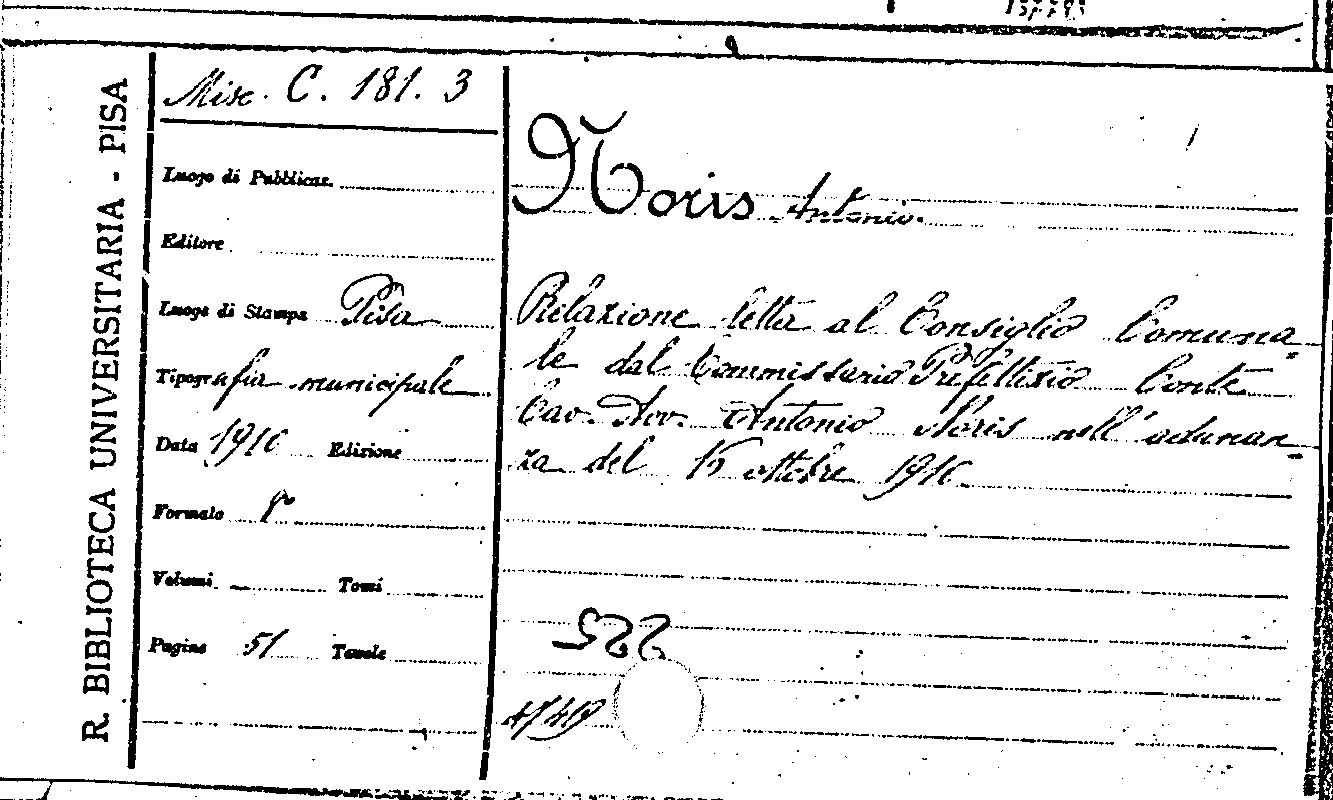 R. BIBLIOTECA UNIVERSITARIA - PISA
Misc. C. 181. 3
Luogo di Pubblicaz.
Editore
Luogo di Stampa Pisa
Tipografia municipale
Data 1910 Edizione
Formato 8°
Volumi – Tomi
Pagine 51 Tavole
Noris Antonio.
Relazione letta al Consiglio Comuna-
le dal Commissario Prefettizio Conte
Cav. Avv. Antonio Noris nell'adunan-
za del 15 ottobre 1910.
522